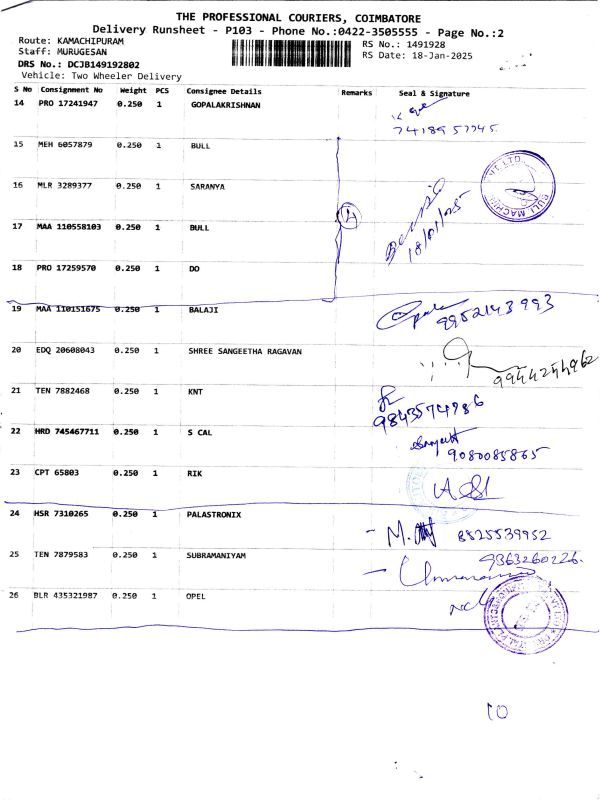 THE PROFESSIONAL COURIERS, COIMBATORE
Delivery Runsheet - P103 - Phone No.:0422-3505555 - Page No.:2
Route: KAMACHIPURAM RS No.: 1491928
Staff: MURUGESAN RS Date: 18-Jan-2025
DRS No.: DCJB149192802
Vehicle: Two Wheeler Delivery
S No Consignment No Weight PCS Consignee Details Remarks Seal & Signature
14 PRO 17241947 0.250 1 GOPALAKRISHNAN
15 MEH 6057879 0.250 1 BULL
16 MLR 3289377 0.250 1 SARANYA
18/01/2025
17 MAA 110558103 0.250 1 BULL
18 PRO 17259570 0.250 1 DO
19 MAA 110151675 0.250 1 BALAJI 9952143993
20 EDQ 20608043 0.250 1 SHREE SANGEETHA RAGAVAN 9944254962
21 TEN 7882468 0.250 1 KNT 9843574986
22 HRD 745467711 0.250 1 S CAL 9080085865
23 CPT 65803 0.250 1 RIK
24 HSR 7310265 0.250 1 PALASTRONIX 8825539952
25 TEN 7879583 0.250 1 SUBRAMANIYAM 9363260226
26 BLR 435321987 0.250 1 OPEL
10